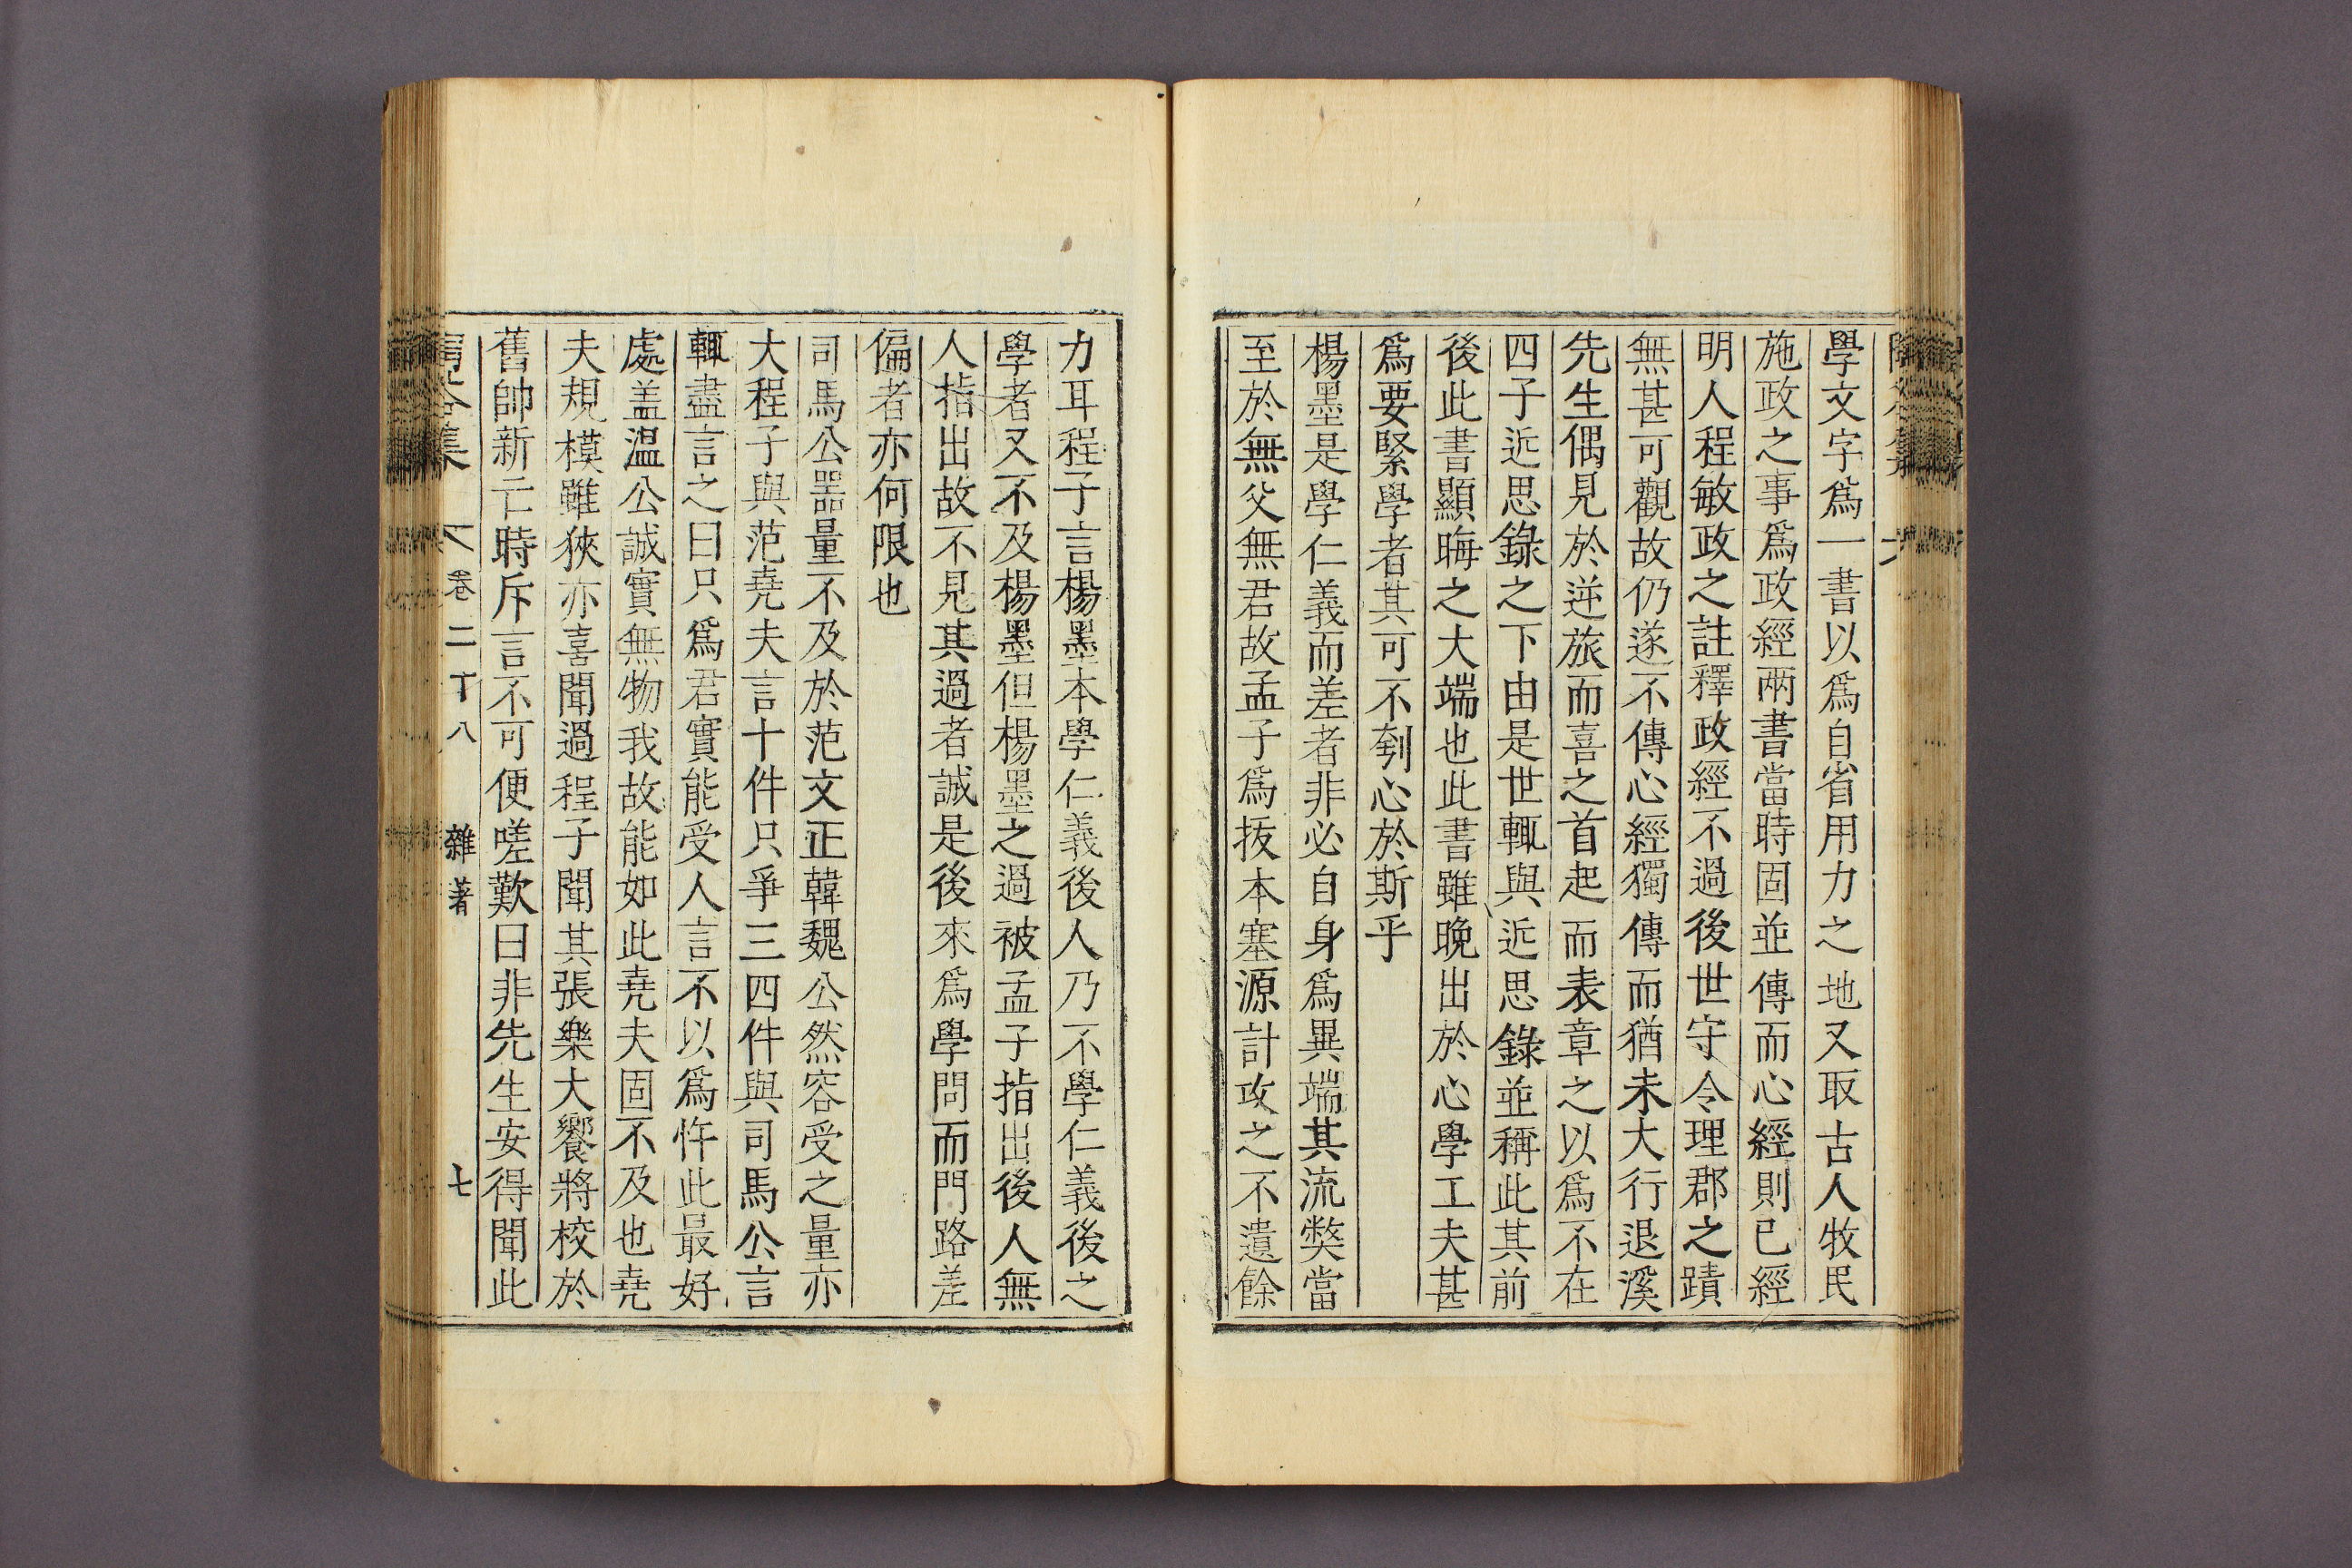 學文字爲一書以爲自省用力之地又取古人牧民
施政之事爲政經兩書當時固並傳而心經則已經
明人程敏政之註釋政經不過後世守令理郡之蹟
無甚可觀故仍遂不傳心經獨傳而猶未大行退溪
先生偶見於逆旅而喜之首起而表章之以爲不在
四子近思錄之下由是世輒與近思錄並稱此其前
後此書顯晦之大端也此書雖晚出於心學工夫甚
爲要緊學者其可不刳心於斯乎
楊墨是學仁義而差者非必自身爲異端其流弊當
至於無父無君故孟子爲拔本塞源計攻之不遺餘
力耳程子言楊墨本學仁義後人乃不學仁義後之
學者又不及楊墨但楊墨之過被孟子指出後人無
人指出故不見其過者誠是後來爲學問而門路差
偏者亦何限也
司馬公噐量不及於范文正韓魏公然容受之量亦
大程子與范堯夫言十件只爭三四件與司馬公言
輒盡言之曰只爲君實能受人言不以爲忤此最好
處盖溫公誠實無物我故能如此堯夫固不及也堯
夫規模雖狹亦喜聞過程子聞其張樂大饗將校於
舊帥新亡時斥言不可便嗟歎曰非先生安得聞此
集 卷二十八 雜著 七